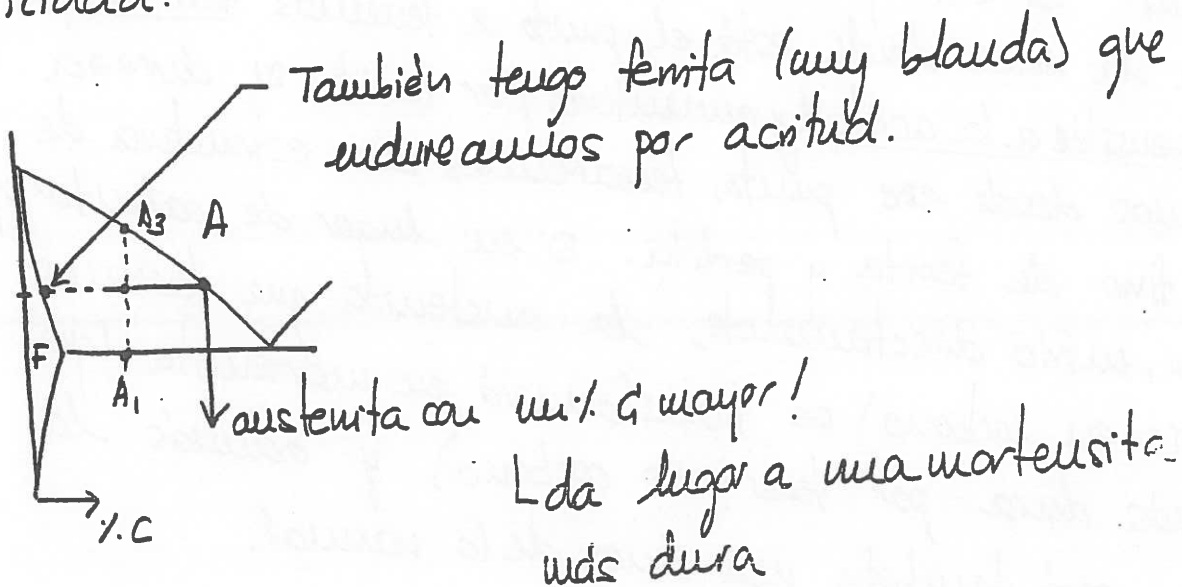 También tengo ferrita (muy blanda) que
endurecemos por acritud.
A3
A
F
A1
austenita con un % C mayor!
da lugar a una martensita
más dura
%C